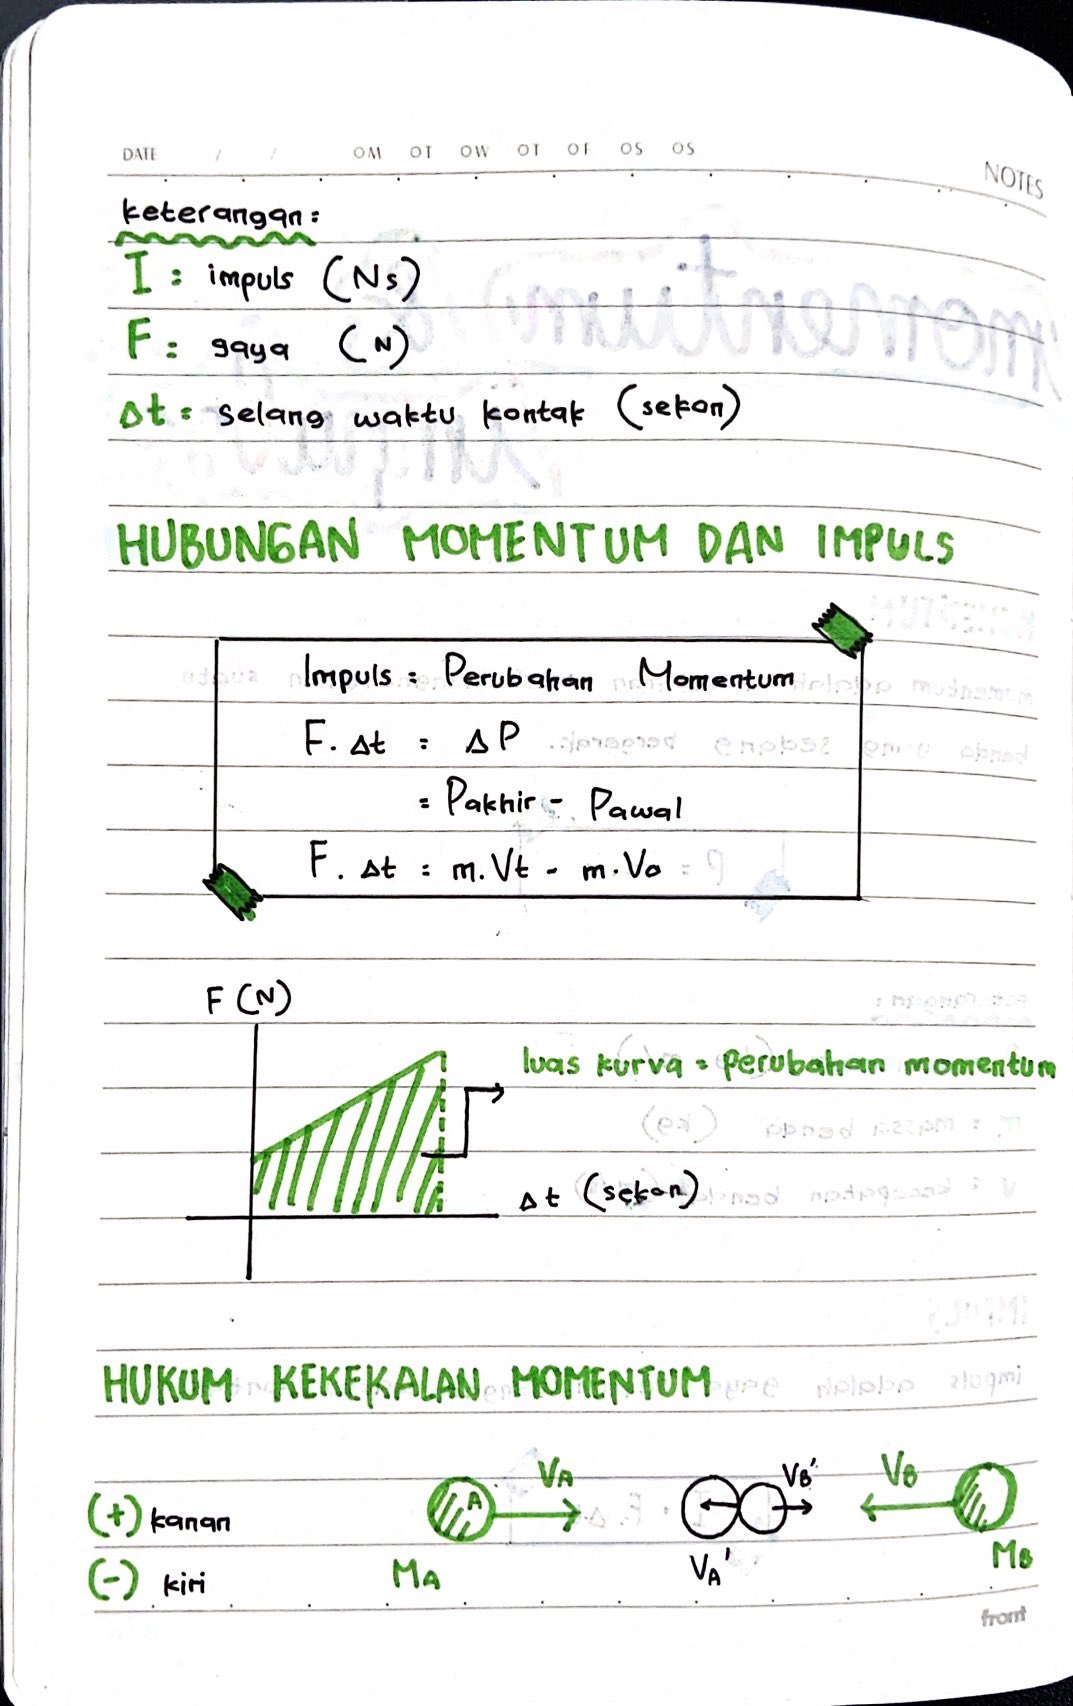 DATE / / OM OT OW OT OF OS OS
NOTES
keterangan:
I : impuls (Ns)
F : gaya (N)
Δt : selang waktu kontak (sekon)
HUBUNGAN MOMENTUM DAN IMPULS
Impuls = Perubahan Momentum
F. Δt = ΔP
= Pakhir - Pawal
F. Δt = m.Vt - m.Vo
F (N)
luas kurva = perubahan momentum
Δt (sekon)
HUKUM KEKEKALAN MOMENTUM
(+) kanan
(-) kiri
A
VA
MA
VA'
VB'
VB
MB
front